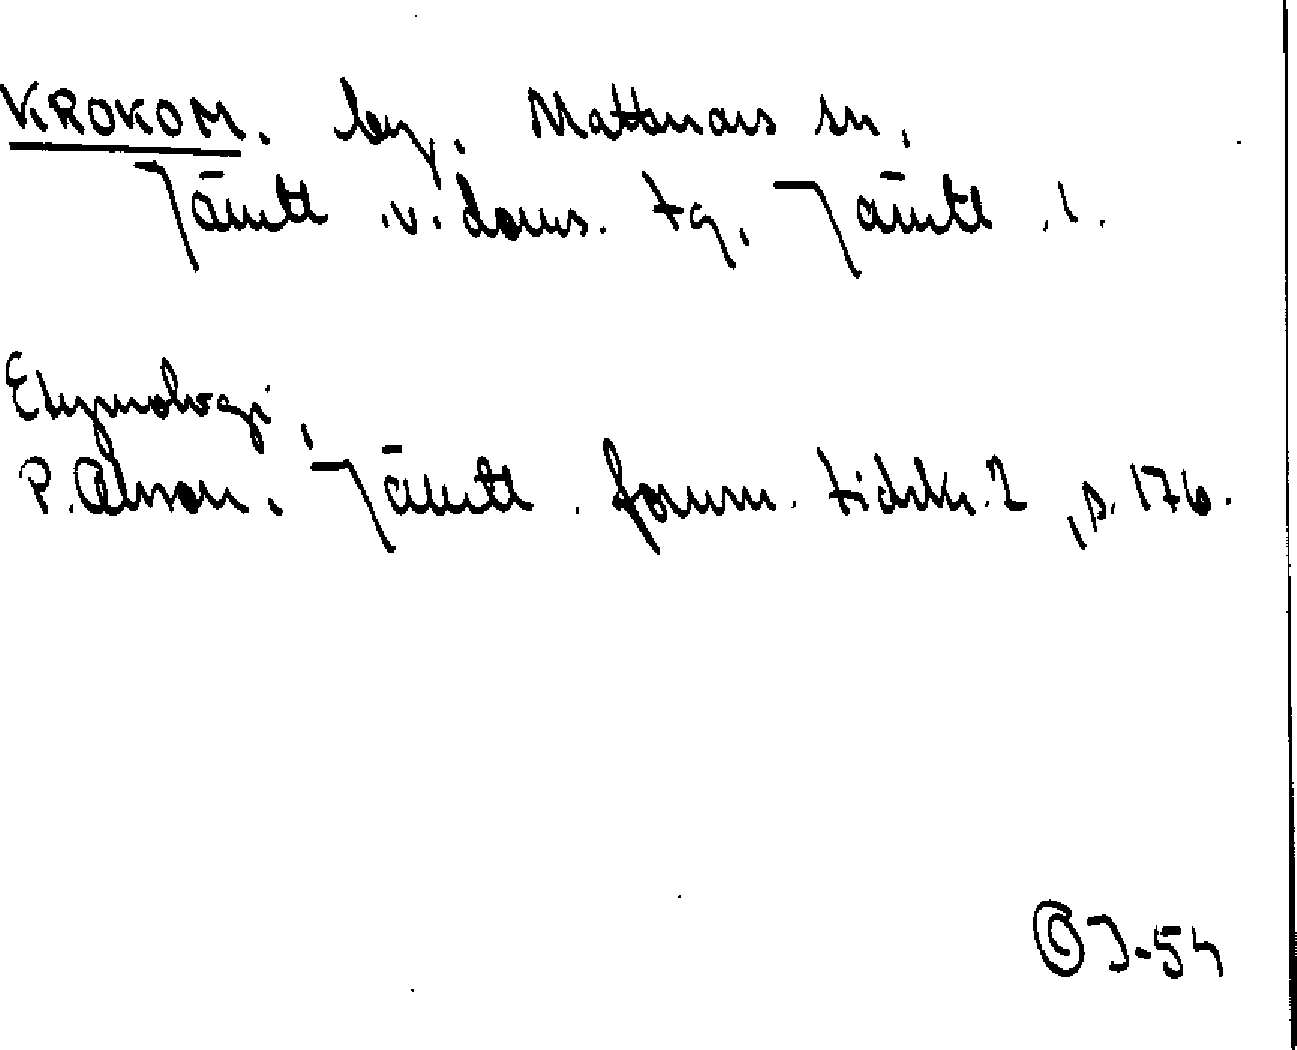 KROKOM. by. Mattmars sn,
Jämtl .v. doms. tg, Jämtl .l.
Etymologi,
P. Olsson. Jämtl . fornm. tidskr. 2 ,s. 176.
J-54